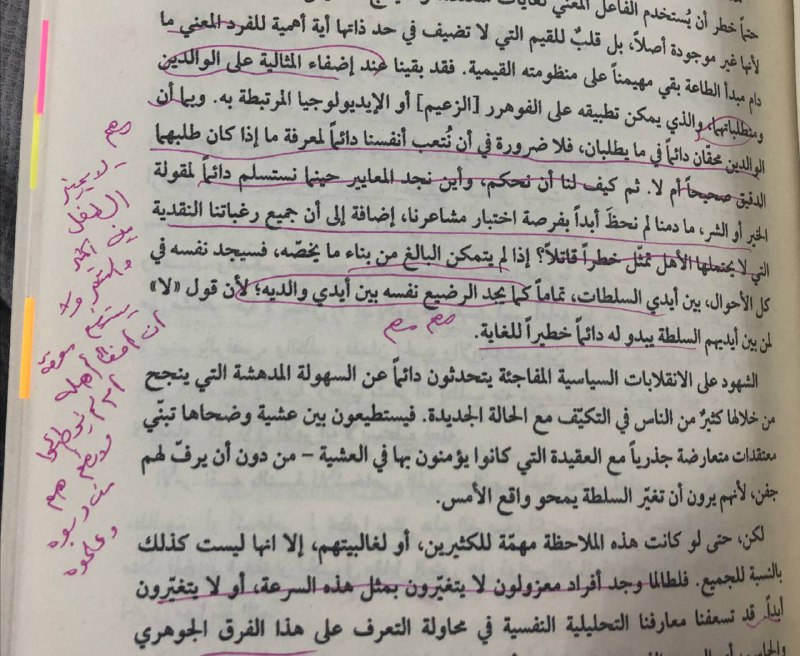 حتماً خطر أن يُستخدم الفاعل المعني لغايات
لأنها غير موجودة أصلاً، بل قلبٌ للقيم التي لا تضيف في حد ذاتها أية أهمية للفرد المعني ما
دام مبدأ الطاعة بقي مهيمناً على منظومته القيمية. فقد بقينا عند إضفاء المثالية على الوالدين
ومتطلباتهما، والذي يمكن تطبيقه على الفوهرر [الزعيم] أو الإيديولوجيا المرتبطة به. وبما أن
الوالدين محقّان دائماً في ما يطلبان، فلا ضرورة في أن نُتعب أنفسنا دائماً لمعرفة ما إذا كان طلبهما
الدقيق صحيحاً أم لا. ثم كيف لنا أن نحكم، وأين نجد المعايير حينما نستسلم دائماً لمقولة
الخير أو الشر، ما دمنا لم نحظَ أبداً بفرصة اختبار مشاعرنا، إضافة إلى أن جميع رغباتنا النقدية
التي لا يحتملها الأهل تمثّل خطراً قاتلاً؟ إذا لم يتمكن البالغ من بناء ما يخصّه، فسيجد نفسه في
كل الأحوال، بين أيدي السلطات، تماماً كما يجد الرضيع نفسه بين أيدي والديه؛ لأن قول «لا»
لمن بين أيديهم السلطة يبدو له دائماً خطيراً للغاية.
مهم مهم
الشهود على الانقلابات السياسية المفاجئة يتحدثون دائماً عن السهولة المدهشة التي ينجح
من خلالها كثيرٌ من الناس في التكيّف مع الحالة الجديدة. فيستطيعون بين عشية وضحاها تبنّي
معتقدات متعارضة جذرياً مع العقيدة التي كانوا يؤمنون بها في العشية – من دون أن يرفّ لهم
جفن، لأنهم يرون أن تغيّر السلطة يمحو واقع الأمس.
لكن، حتى لو كانت هذه الملاحظة مهمّة للكثيرين، أو لغالبيتهم، إلا انها ليست كذلك
بالنسبة للجميع. فلطالما وجد أفراد معزولون لا يتغيّرون بمثل هذه السرعة، أو لا يتغيّرون
أبداً. قد تسعفنا معارفنا التحليلية النفسية في محاولة التعرف على هذا الفرق الجوهري
مهم
لا يميز
الطفل
بين الخير
والشر ولا
يستطيع معرفة